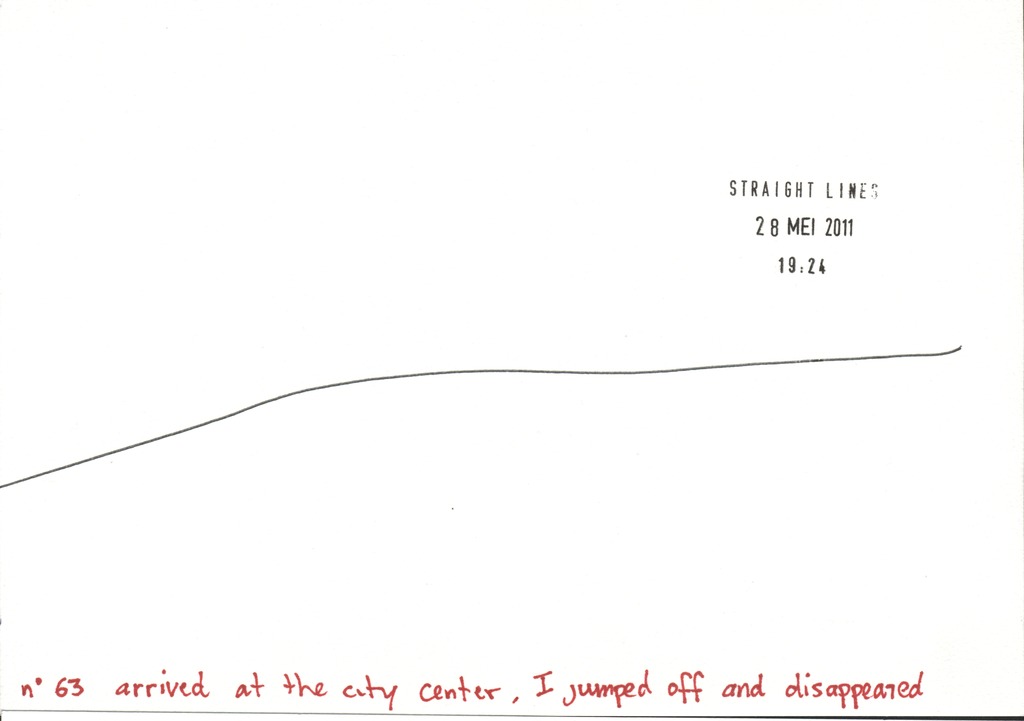 STRAIGHT LINES
28 MEI 2011
19:24
n° 63 arrived at the city center, I jumped off and disappeared